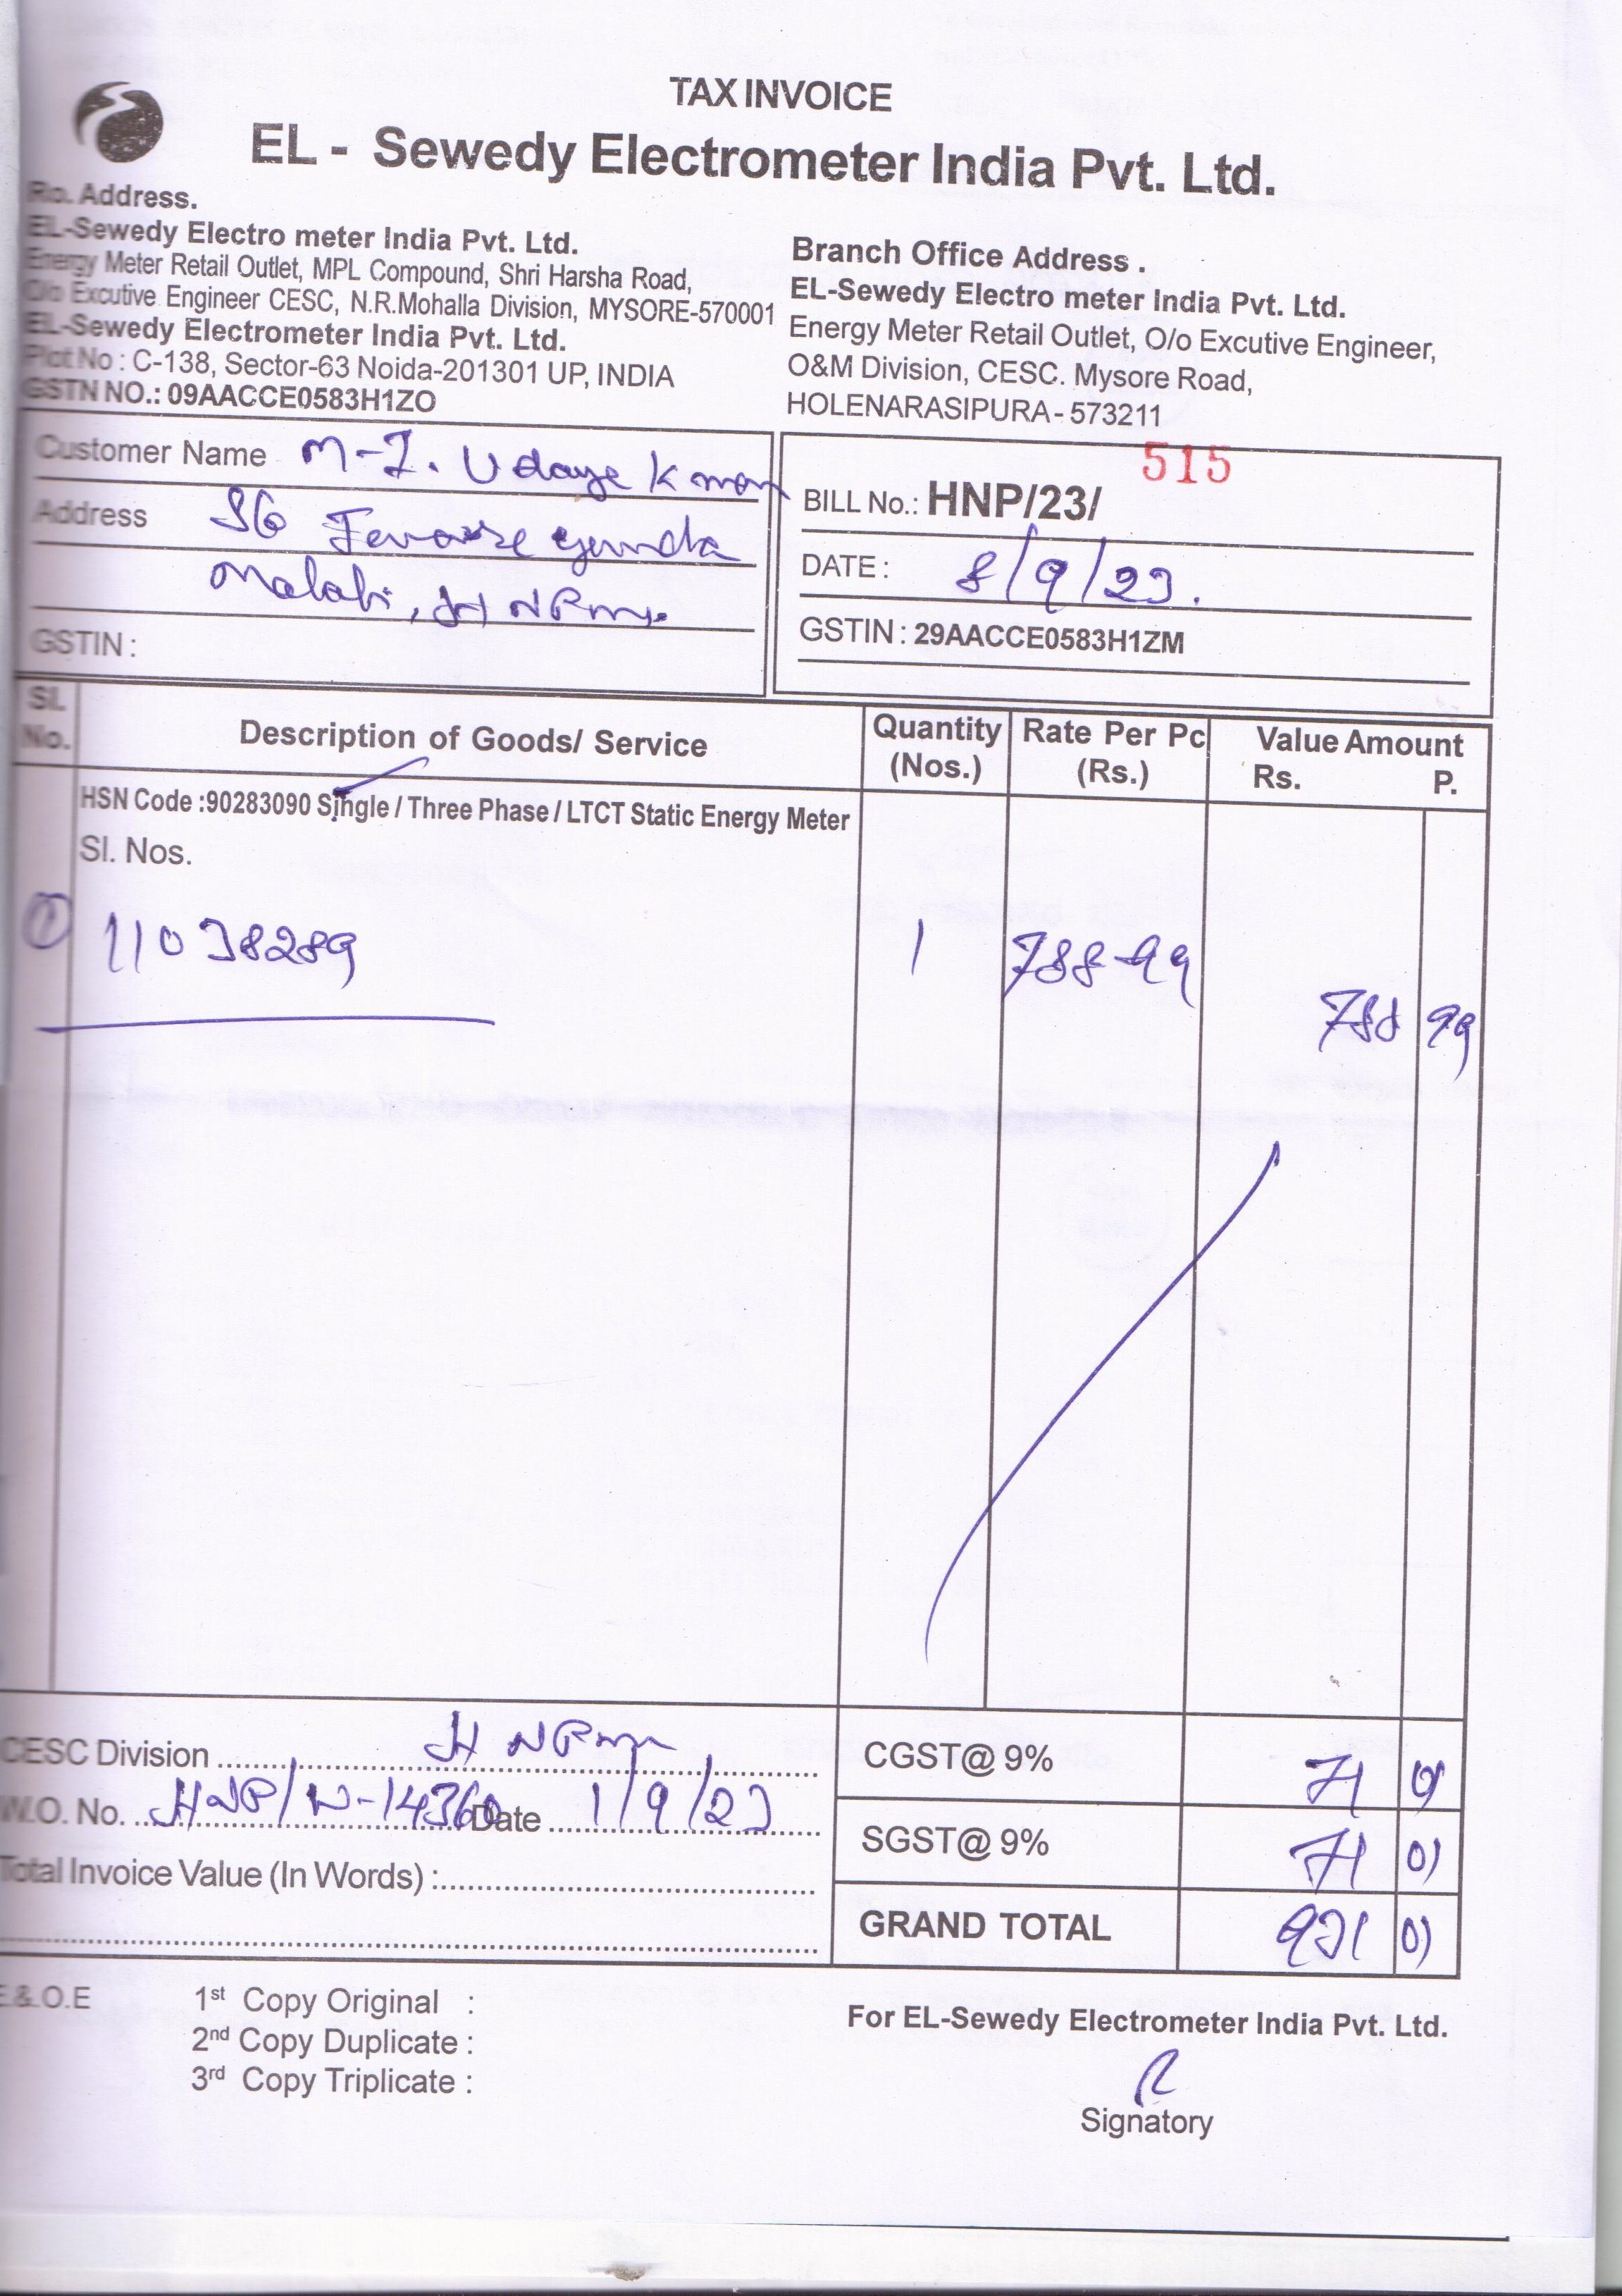 TAX INVOICE
EL - Sewedy Electrometer India Pvt. Ltd.
Ro. Address.
EL-Sewedy Electro meter India Pvt. Ltd.
Energy Meter Retail Outlet, MPL Compound, Shri Harsha Road,
O/o Excutive Engineer CESC, N.R.Mohalla Division, MYSORE-570001
EL-Sewedy Electrometer India Pvt. Ltd.
Plot No : C-138, Sector-63 Noida-201301 UP, INDIA
GSTN NO.: 09AACCE0583H1ZO
Branch Office Address .
EL-Sewedy Electro meter India Pvt. Ltd.
Energy Meter Retail Outlet, O/o Excutive Engineer,
O&M Division, CESC. Mysore Road,
HOLENARASIPURA - 573211
Customer Name M-J. Udaye Kumar
Address S/o
GSTIN :
515
BILL No.: HNP/23/
DATE : 8/9/23.
GSTIN : 29AACCE0583H1ZM
Sl. No. Description of Goods/ Service Quantity (Nos.) Rate Per Pc (Rs.) Value Amount Rs. P.
HSN Code :90283090 Single / Three Phase / LTCT Static Energy Meter
Sl. Nos.
1 11038289 1 788-99
788 99
CESC Division
W.O. No. HNP/N-14360 Date 1/9/23
Total Invoice Value (In Words) :
CGST@ 9% 71 01
SGST@ 9% 71 01
GRAND TOTAL 931 01
E.& O.E
1st Copy Original :
2nd Copy Duplicate :
3rd Copy Triplicate :
For EL-Sewedy Electrometer India Pvt. Ltd.
Signatory